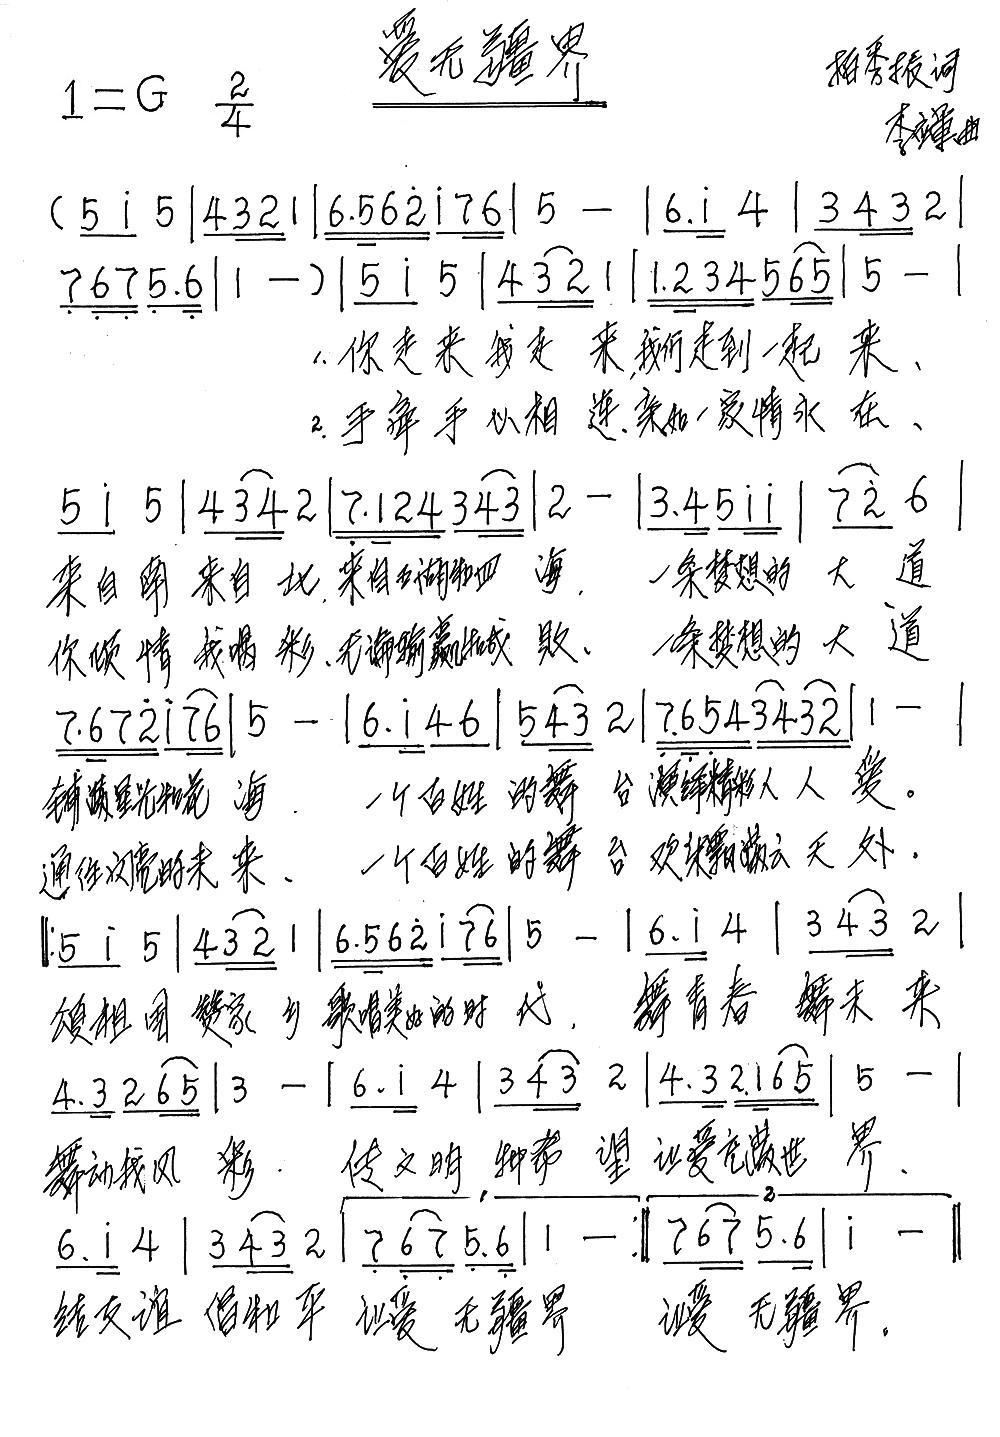 爱无疆界
1=G 2/4
词
李 曲
( 5 i 5 | 4 3 2 1 | 6.5 6 2 i 7 6 | 5 — | 6. i 4 | 3 4 3 2 |
7 6 7 5.6 | 1 — ) | 5 i 5 | 4 3 2 1 | 1.2 3 4 5 6 5 | 5 — |
1. 你走来我走来,我们走到一起来、
2. 手牵手心相连、亲如一家情永在、
5 i 5 | 4 3 4 2 | 7.1 2 4 3 4 3 | 2 — | 3.4 5 i i | 7 2 6 |
来自南来自北,来自五湖和四海. 一条梦想的大道
你倾情我喝彩、无论输赢和成败、一条梦想的大道
7.6 7 2 i 7 6 | 5 — | 6. i 4 6 | 5 4 3 2 | 7.6 5 4 3 4.3 2 | 1 — |
铺满星光和花海. 一个百姓的舞台演绎精彩人人爱。
通往闪亮的未来、一个百姓的舞台欢 云天外.
‖: 5 i 5 | 4 3 2 1 | 6.5 6 2 i 7 6 | 5 — | 6. i 4 | 3 4 3 2 |
颂祖国赞家乡歌唱美好的时代, 舞青春舞未来
4.3 2 6 5 | 3 — | 6. i 4 | 3 4 3 2 | 4.3 2.1 6 5 | 5 — |
舞动我风彩. 传文明种希望让爱充满世界、
1. 2
6. i 4 | 3 4 3 2 | 7 6 7 5.6 | 1 — :‖ 7 6 7 5.6 | i — ‖
结友谊倡和平让爱无疆界 让爱无疆界.